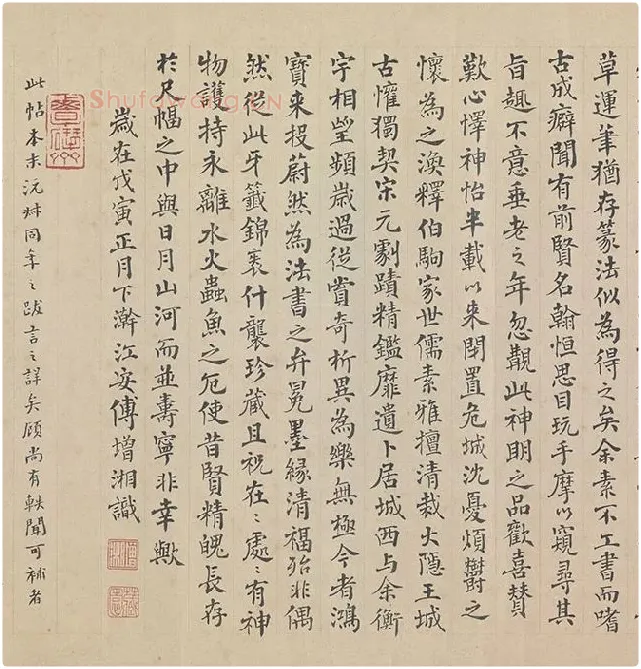 草運筆猶存篆法似為得之矣余素不工書而嗜
古成癖聞有前賢名翰恒思目玩手摩以窺尋其
旨趣不意垂老之年忽覯此神明之品歡喜贊
歎心懌神怡半載以来閉置危城沈憂煩鬱之
懷為之渙釋伯駒家世儒素雅擅清裁大隱王城
古懽獨契宋元劇蹟精鑑靡遺卜居城西与余衡
宇相望頻歲過從賞奇析異為樂無極今者鴻
寶来投蔚然為法書之弁冕墨緣清福殆非偶
然從此牙籤錦裹什襲珍藏且祝在=處=有神
物護持永離水火蟲魚之厄使昔賢精魄長存
於尺幅之中與日月山河而並壽寧非幸歟
歲在戊寅正月下澣江安傅增湘識
此帖本末沅叔同年之跋言之詳矣顧尚有軼聞可補者
Shufawang.CN